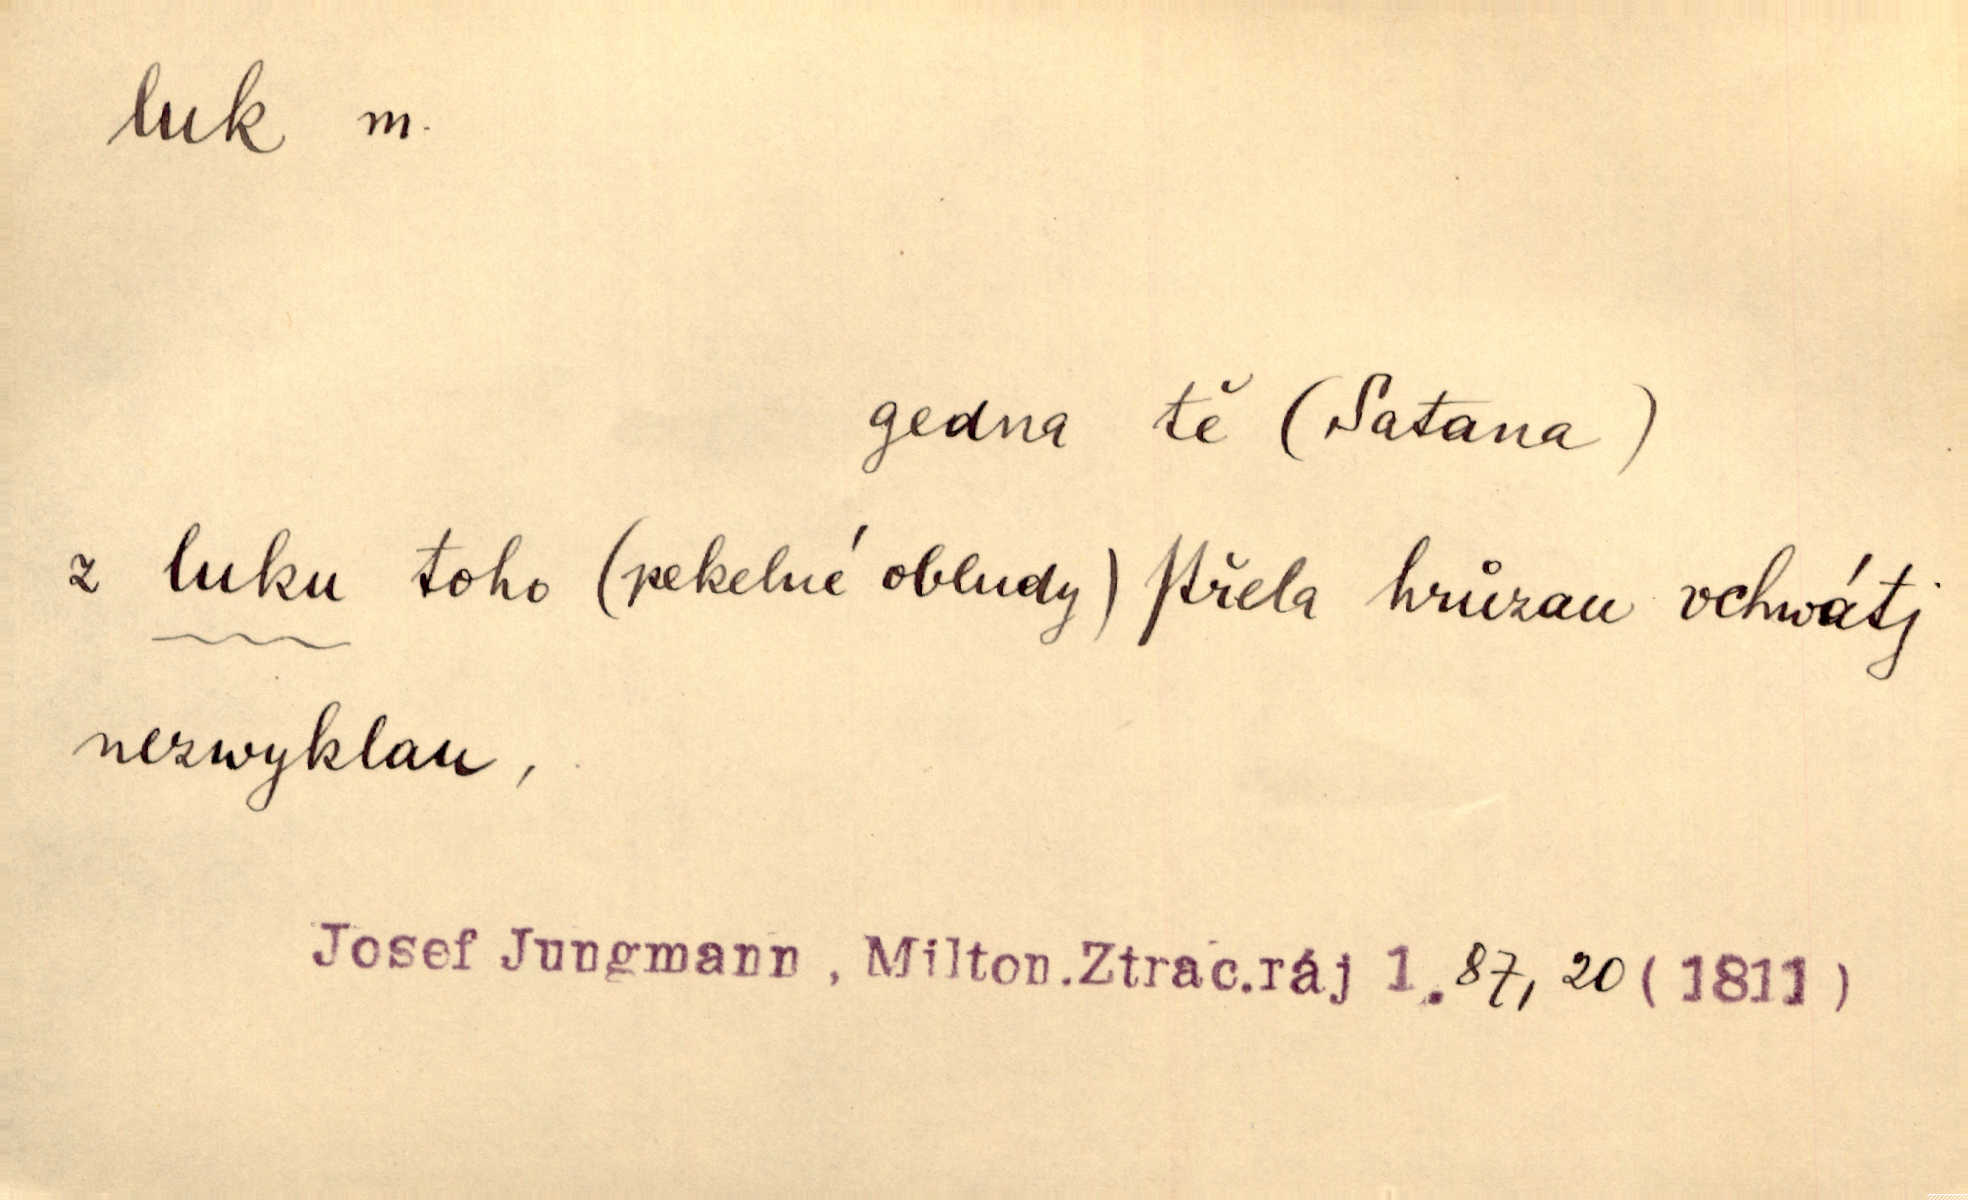 luk m.
gedna tě (Satana)
z luku toho (pekelné obludy) střela hrůzau vchwátj
nezwyklau,
Josef Jungmann, Milton.Ztrac.ráj 1. 87, 20 (1811)